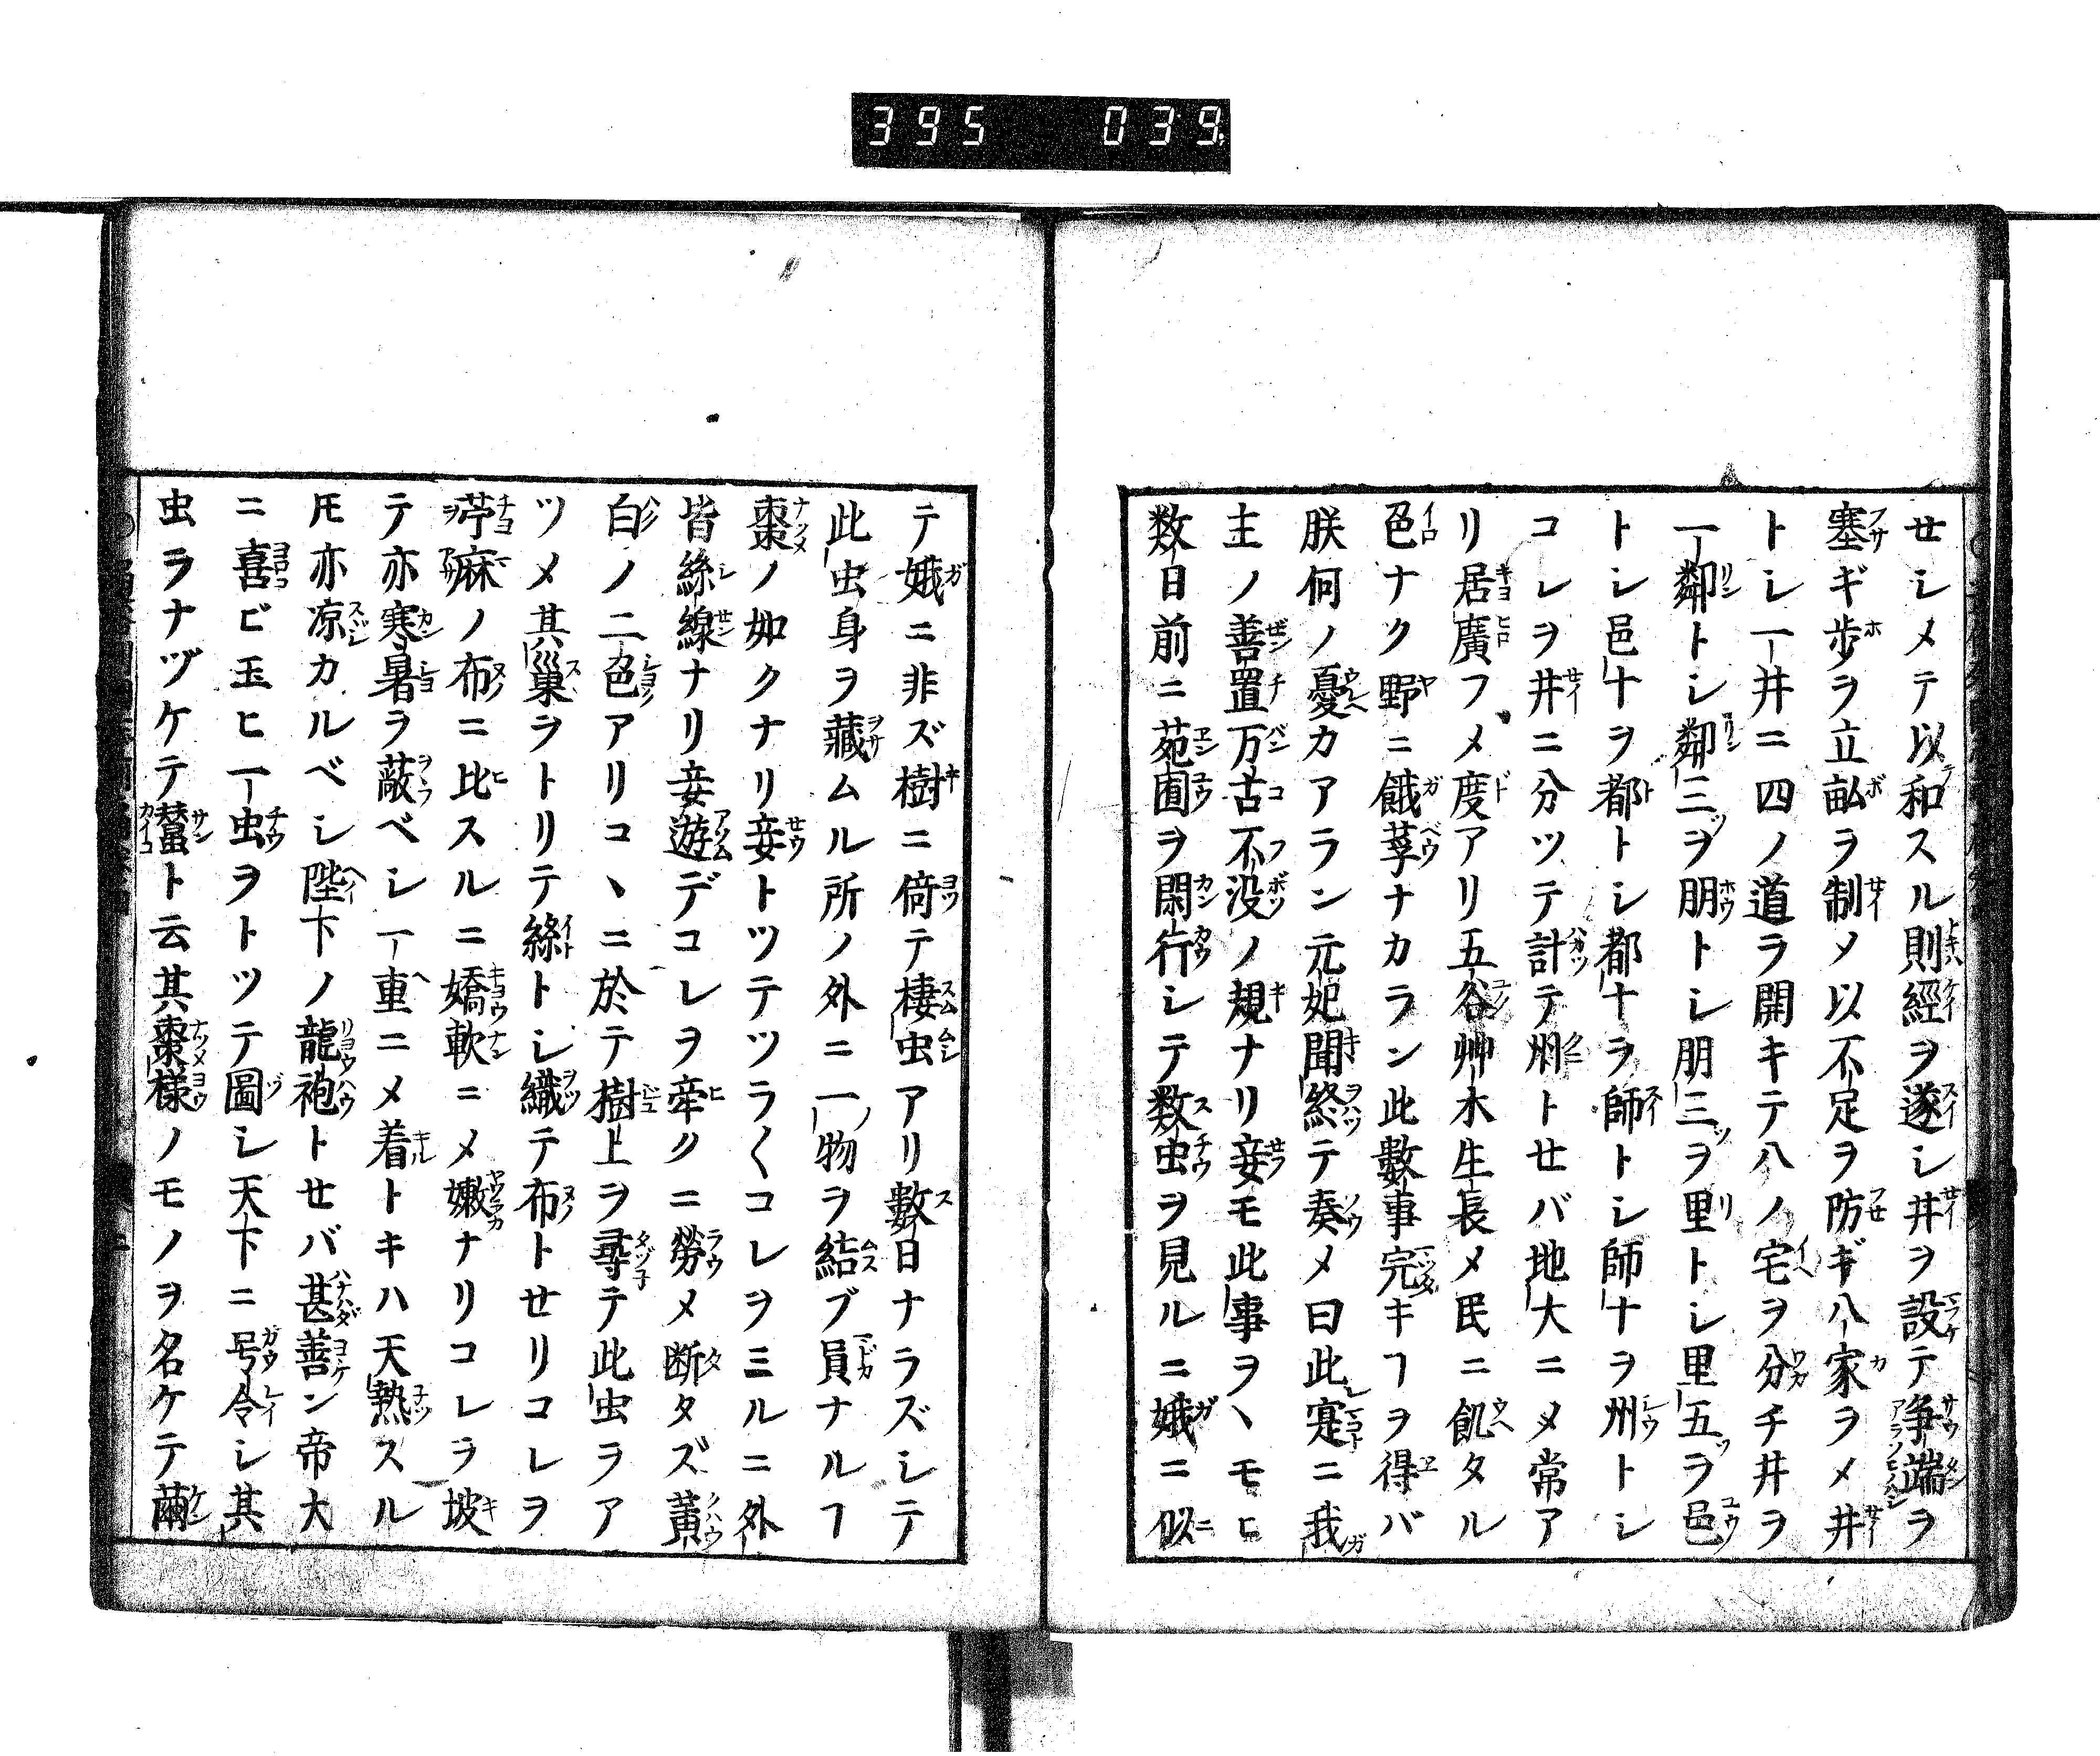 395 039
セシメテ以和スル則經ヲ遂シ井ヲ設テ争端ヲ
塞ギ歩ヲ立畆ヲ制メ以不足ヲ防ギ八家ヲメ井
トシ一井ニ四ノ道ヲ開キテ八ノ宅ヲ分チ井ヲ
一鄰トシ鄰三ヲ朋トシ朋三ヲ里トシ里五ヲ邑
トシ邑十ヲ都トシ都十ヲ師トシ師十ヲ州トシ
コレヲ井ニ分ツテ計テ州トセバ地大ニメ常ア
リ居廣フメ度アリ五谷艸木生長メ民ニ飢タル
色ナク野ニ餓莩ナカラン此數事完キヿヲ得バ
朕何ノ憂カアラン元妃聞終テ奏メ曰此寔ニ我
主ノ善置万古不没ノ規ナリ妾モ此事ヲヽモヒ
数日前ニ苑圃ヲ閑行シテ数虫ヲ見ルニ娥ニ似
テ娥ニ非ズ樹ニ倚テ棲虫アリ數日ナラズシテ
此虫身ヲ藏ムル所ノ外ニ一物ヲ結ブ員ナルヿ
棗ノ如クナリ妾トツテツラ〱コレヲミルニ外
皆絲線ナリ妾遊デコレヲ牽クニ勞メ断タズ黄
白ノ二色アリコヽニ於テ樹上ヲ尋テ此虫ヲア
ツメ其巢ヲトリテ絲トシ織テ布トセリコレヲ
苧麻ノ布ニ比スルニ嬌軟ニメ嫩ナリコレヲ披
テ亦寒暑ヲ蔽ベシ一重ニメ着トキハ天熱スル
𪜈亦凉カルベシ陛下ノ龍袍トセバ甚善ン帝大
ニ喜ビ玉ヒ一虫ヲトツテ圖シ天下ニ号令シ其
虫ヲナヅケテ蠶ト云其棗様ノモノヲ名ケテ繭